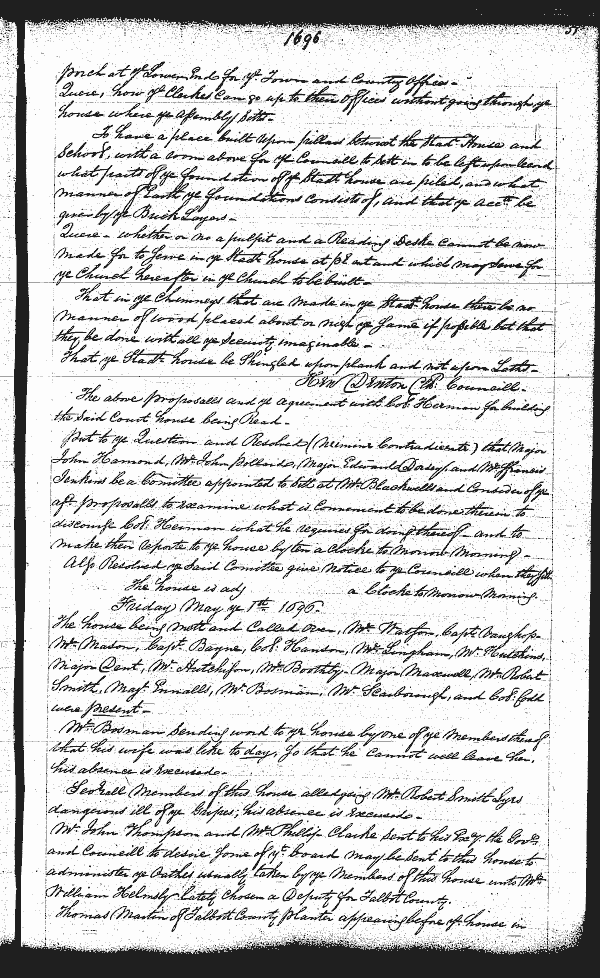 1696
57
porch at ye Lower End for ye Town and County Offices -
Quere, how ye Clarkes can go up to their Offices without going through ye
house where ye Assembly sitts -
To have a place built upon pillars betwixt the Stadt House and
School, with a room above for ye Councill to sitt in to be left upon Record
what parts of ye foundation of ye Stadt house are piled, and what
manner of Earth ye foundations consists of, and that ye acct. be
given by ye Brick Layers -
Quere - whether or no a pulpit and a Reading Deske cannot be now
made for to serve in ye Stadt house at and which may serve for
ye Church hereafter in ye Church to be built -
That in ye Chimneys that are made in ye Stadt house there be no
manner of wood placed about or nigh ye same if possible but that
they be done with all ye security imaginable -
That ye Stadt house be Shingled upon plank and not upon Laths -
Hen Denton Clk. Councill -
The above proposalls and ye agreement with Col. Herman for building
the said Court house being Read -
put to ye Question and Resolved (nemine Contradicente) that Major
John Hamond, Mr. John Pollard, Major Edward Dorsey, and Mr. Francis
Jenkins be a Comittee appointed to sitt at Mr. Blackwells and Consider of ye
afd. proposalls to examine what is Convenient to be done therein to
discourse Col. Herman what he requires for doing thereof - and to
make their reporte to ye house by ten a Clocke to Morrow Morning -
Also Resolved ye said Comittee give Notice to ye Councill when they sitt
The house is adj a Clocke to Morrow Morning.
Friday May ye 1st. 1696.
The house being mett and Called Over, Mr. Watson, Capt. Vaughop
Mr. Mason, Capt. Bayne, Col. Hanson, Mr. Lingham, Mr. Hutchins,
Major Dent, Mr. Hutchison, Mr. Boothby - Major Maxwell, Mr. Robert
Smith, Maj. Ennalls, Mr. Bosman, Mr. Scarborough, and Col. Codd
were present -
Mr. Bosman sending word to ye house by one of ye Members thereof
that his wife was like to day, so that he cannot well leave her,
his absence is Excused -
Severall Members of this house alledging Mr. Robert Smith Lyes
dangerous ill of ye Gripes; his absence is Excused -
Mr. John Thompson and Mr. Phillip Clarke sent to his Exy. the Govr.
and Councill to desire some of yt. board may be sent to this house to
administer ye Oathes usually taken by ye Members of this house unto Mr.
William Helmsly lately chosen a Deputy for Talbot County.
Thomas Martin of Talbott County planter appearing before ye house in